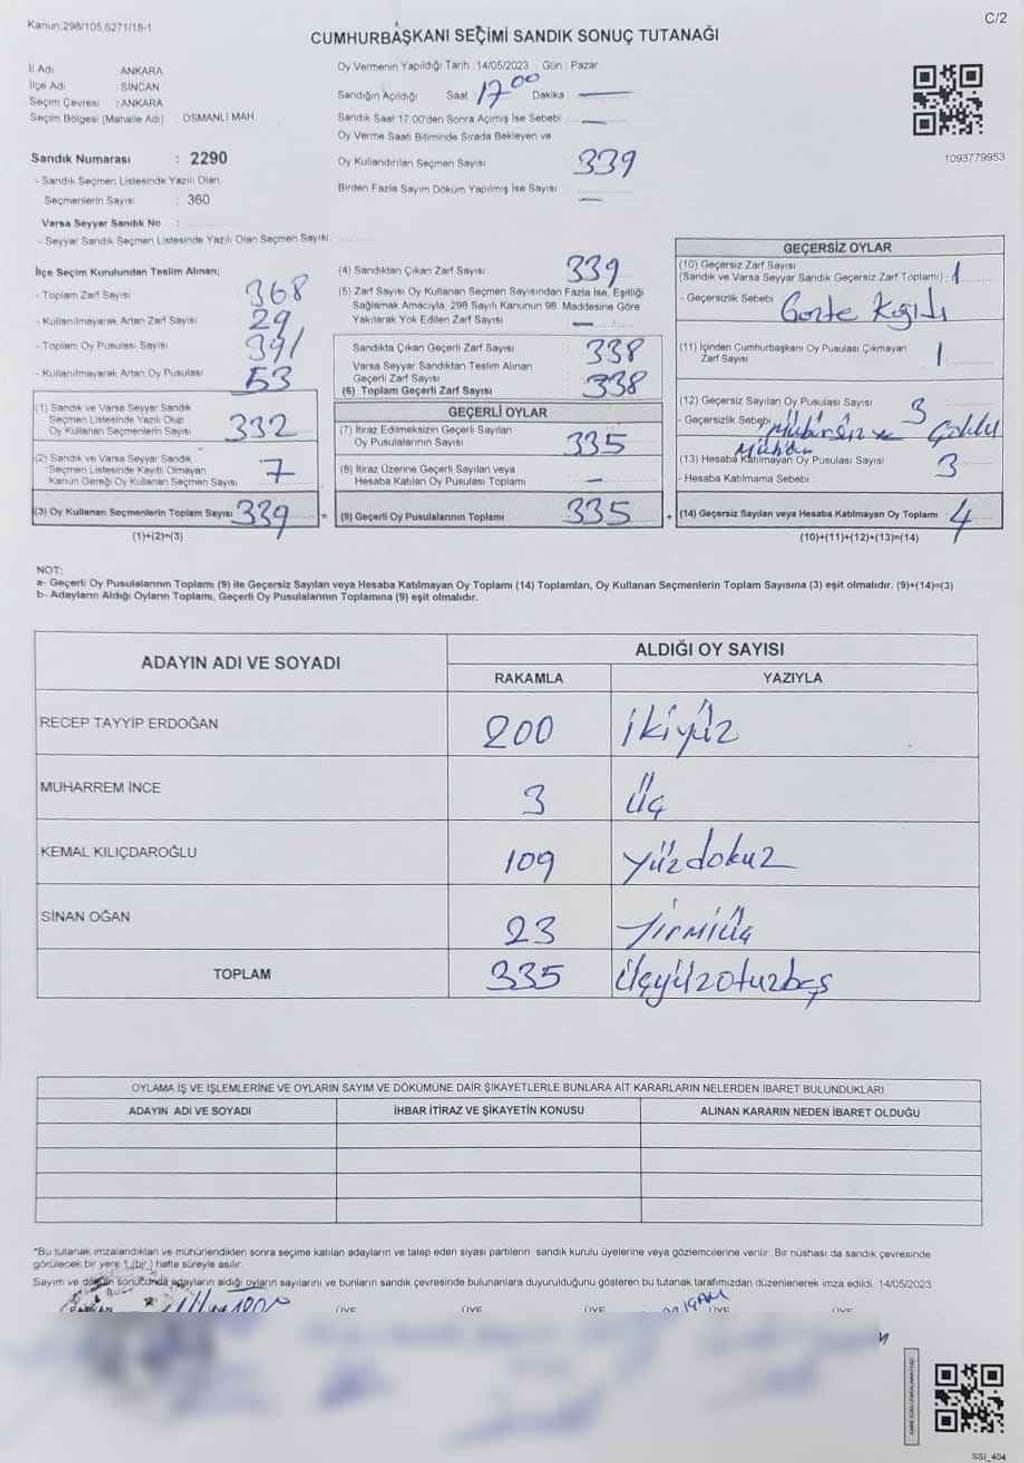 C/2
Kanun:298/105,6271/18-1
CUMHURBAŞKANI SEÇİMİ SANDIK SONUÇ TUTANAĞI
İl Adı : ANKARA
İlçe Adı : SİNCAN
Seçim Çevresi : ANKARA
Seçim Bölgesi (Mahalle Adı) OSMANLI MAH.
Sandık Numarası : 2290
- Sandık Seçmen Listesinde Yazılı Olan
Seçmenlerin Sayısı : 360
Varsa Seyyar Sandık No :
- Seyyar Sandık Seçmen Listesinde Yazılı Olan Seçmen Sayısı
Oy Vermenin Yapıldığı Tarih :14/05/2023 Gün : Pazar
Sandığın Açıldığı Saat : 17 00 Dakika : —
Sandık Saat 17:00'den Sonra Açımış İse Sebebi —
Oy Verme Saati Bitiminde Sırada Bekleyen ve
Oy Kullandırılan Seçmen Sayısı 339
Birden Fazla Sayım Döküm Yapılmış İse Sayısı —
1093779953
İlçe Seçim Kurulundan Teslim Alınan;
- Toplam Zarf Sayısı 368
- Kullanılmayarak Artan Zarf Sayısı 29
- Toplam Oy Pusulası Sayısı 391
- Kullanılmayarak Artan Oy Pusulası 53
(1) Sandık ve Varsa Seyyar Sandık
Seçmen Listesinde Yazılı Olup
Oy Kullanan Seçmenlerin Sayısı 332
(2) Sandık ve Varsa Seyyar Sandık
Seçmen Listesinde Kayıtlı Olmayan
Kanun Gereği Oy Kullanan Seçmen Sayısı 7
(3) Oy Kullanan Seçmenlerin Toplam Sayısı 339
(1)+(2)=(3)
(4) Sandıktan Çıkan Zarf Sayısı 339
(5) Zarf Sayısı Oy Kullanan Seçmen Sayısından Fazla İse, Eşitliği
Sağlamak Amacıyla, 298 Sayılı Kanunun 98. Maddesine Göre
Yakılarak Yok Edilen Zarf Sayısı —
Sandıkta Çıkan Geçerli Zarf Sayısı 338
Varsa Seyyar Sandıktan Teslim Alınan
Geçerli Zarf Sayısı
(6) Toplam Geçerli Zarf Sayısı 338
GEÇERLİ OYLAR
(7) İtiraz Edilmeksizin Geçerli Sayılan
Oy Pusulalarının Sayısı 335
(8) İtiraz Üzerine Geçerli Sayılan veya
Hesaba Katılan Oy Pusulası Toplamı —
= (9) Geçerli Oy Pusulalarının Toplamı 335
GEÇERSİZ OYLAR
(10) Geçersiz Zarf Sayısı
(Sandık ve Varsa Seyyar Sandık Geçersiz Zarf Toplamı) : 1
- Geçersizlik Sebebi
(11) İçinden Cumhurbaşkanı Oy Pusulası Çıkmayan
Zarf Sayısı 1
(12) Geçersiz Sayılan Oy Pusulası Sayısı 3
- Geçersizlik Sebebi Mühürsüz ve Çoklu
Mühür
(13) Hesaba Katılmayan Oy Pusulası Sayısı 3
- Hesaba Katılmama Sebebi
+ (14) Geçersiz Sayılan veya Hesaba Katılmayan Oy Toplamı 4
(10)+(11)+(12)+(13)=(14)
NOT:
a- Geçerli Oy Pusulalarının Toplamı (9) ile Geçersiz Sayılan veya Hesaba Katılmayan Oy Toplamı (14) Toplamları, Oy Kullanan Seçmenlerin Toplam Sayısına (3) eşit olmalıdır. (9)+(14)=(3)
b- Adayların Aldığı Oyların Toplamı, Geçerli Oy Pusulalarının Toplamına (9) eşit olmalıdır.
ADAYIN ADI VE SOYADI ALDIĞI OY SAYISI
RAKAMLA YAZIYLA
RECEP TAYYİP ERDOĞAN 200 ikiyüz
MUHARREM İNCE 3 üç
KEMAL KILIÇDAROĞLU 109 yüzdokuz
SİNAN OĞAN 23 yirmiüç
TOPLAM 335 üçyüzotuzbeş
OYLAMA İŞ VE İŞLEMLERİNE VE OYLARIN SAYIM VE DÖKÜMÜNE DAİR ŞİKAYETLERLE BUNLARA AİT KARARLARIN NELERDEN İBARET BULUNDUKLARI
ADAYIN ADI VE SOYADI İHBAR İTİRAZ VE ŞİKAYETİN KONUSU ALINAN KARARIN NEDEN İBARET OLDUĞU
"Bu tutanak imzalandıktan ve mühürlendikten sonra seçime katılan adayların ve talep eden siyasi partilerin sandık kurulu üyelerine veya gözlemcilerine verilir. Bir nüshası da sandık çevresinde
görülecek bir yere 1 (bir) hafta süreyle asılır.
Sayım ve döküm sonucunda adayların aldığı oyların sayılarını ve bunların sandık çevresinde bulunanlara duyurulduğunu gösteren bu tutanak tarafımızdan düzenlenerek imza edildi. 14/05/2023
ÜYE ÜYE ÜYE ÜYE ÜYE
SSI_404